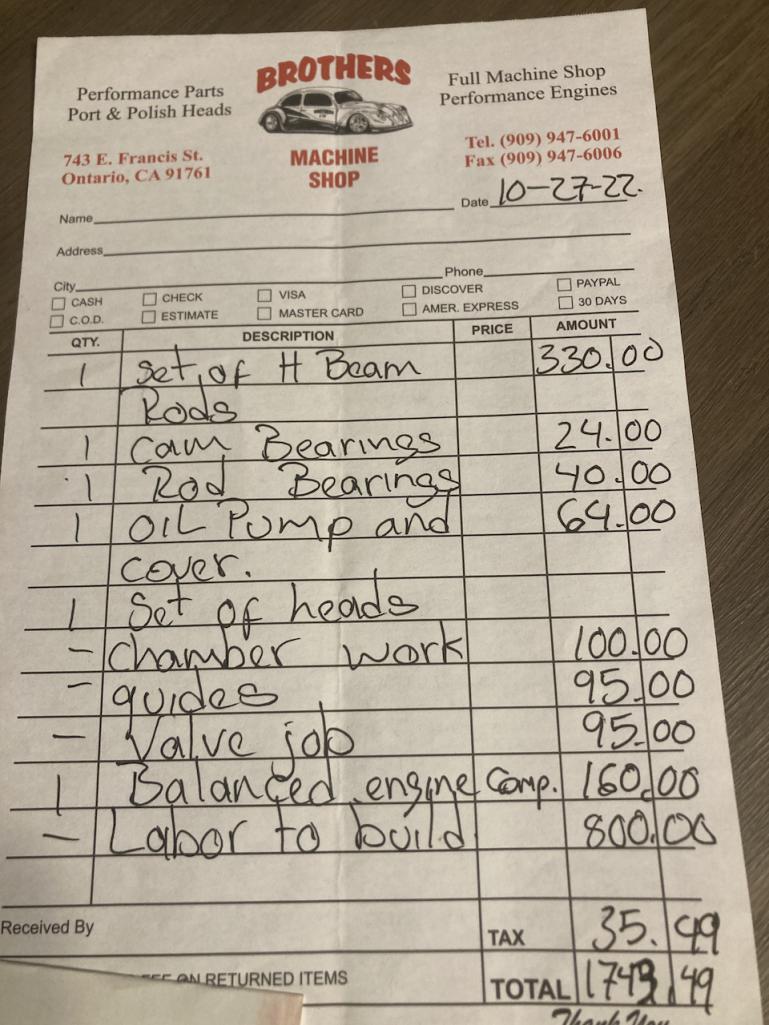 BROTHERS
MACHINE
SHOP
Performance Parts
Port & Polish Heads
Full Machine Shop
Performance Engines
743 E. Francis St.
Ontario, CA 91761
Tel. (909) 947-6001
Fax (909) 947-6006
Date 10-27-22.
Name
Address
City Phone
CASH CHECK VISA DISCOVER PAYPAL
C.O.D. ESTIMATE MASTER CARD AMER. EXPRESS 30 DAYS
QTY. DESCRIPTION PRICE AMOUNT
1 Set of H Beam 330.00
Rods
1 Cam Bearings 24.00
1 Rod Bearings 40.00
1 OIL Pump and 64.00
cover.
1 Set of heads
- Chamber work 100.00
- guides 95.00
- Valve job 95.00
1 Balanced engine Comp. 160.00
- Labor to build 800.00
Received By
TAX 35.49
ON RETURNED ITEMS
TOTAL 1743.49
Thank You